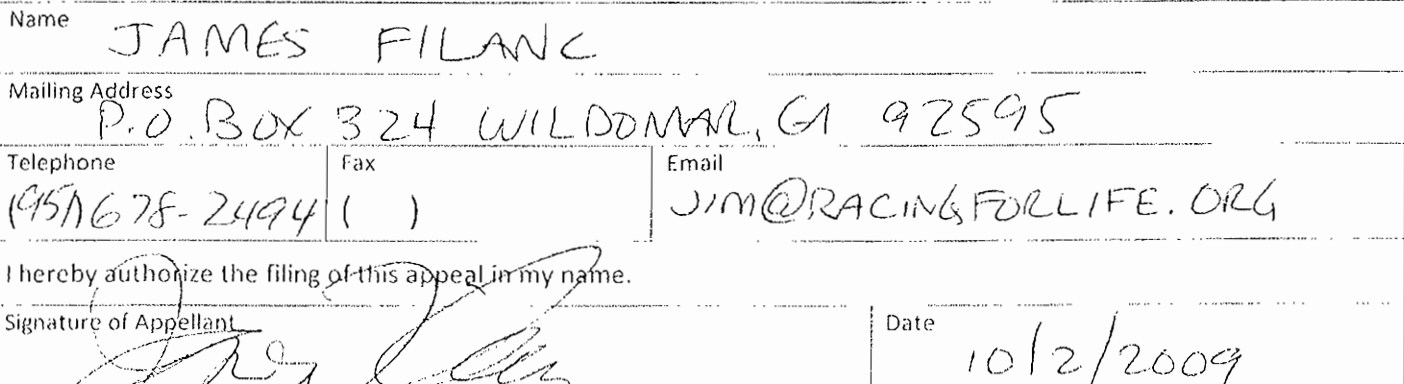 Name
JAMES FILANC
Mailing Address
P.O. BOX 324 WILDOMAR, CA 92595
Telephone Fax Email
(951) 678-2494 ( ) JIM@RACINGFORLIFE.ORG
I hereby authorize the filing of this appeal in my name.
Signature of Appellant Date
10/2/2009